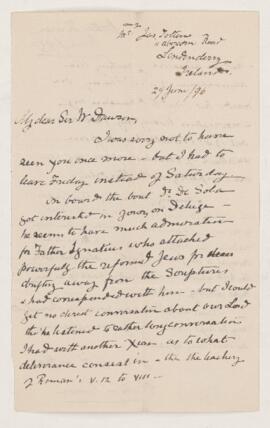 Mrs Jas Totten
Abercorn Road
Londonderry
Ireland
29 June /96
My dear Sir W. Dawson,
I was sorry not to have
seen you once more - but I had to
leave Friday instead of Saturday
on board the boat Dr De Sola
got interested in your, on Deluge -
he seems to have much admiration
for Father Ignatius who attacked
powerfully the reformed Jews for
drifting away from the Scriptures
& had corresponded with him - but I could
get no direct conversation about our Lord
tho he listened to rather long conversation
I had with another Xian as to what
deliverance consist in - the teaching
of Roman's V. 12 to VIII -